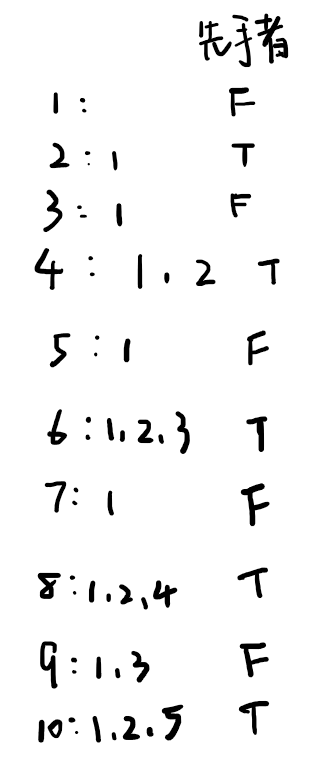 先手者
1: F
2: 1 T
3: 1 F
4: 1, 2 T
5: 1 F
6: 1, 2, 3 T
7: 1 F
8: 1, 2, 4 T
9: 1, 3 F
10: 1, 2, 5 T